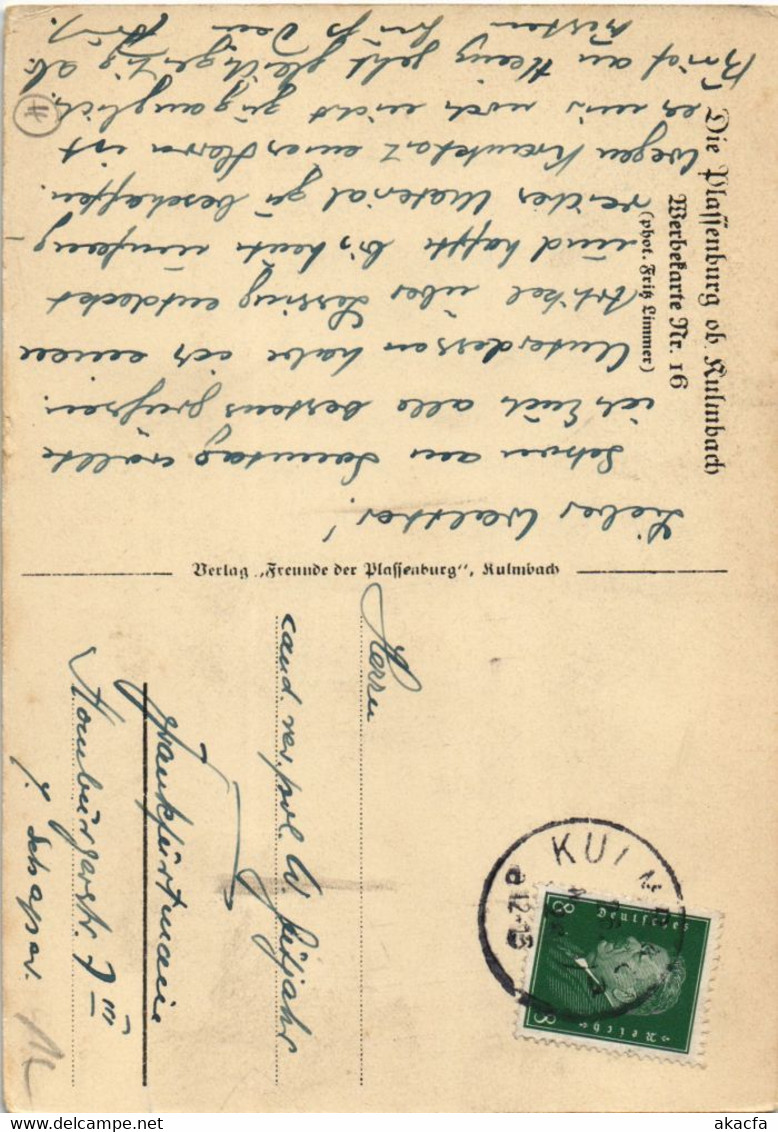 Die Plassenburg ob Kulmbach
Werbekarte Nr. 16
(phot. Fritz Limmer)
Lieber Walther!
Schon am Sonntag wollte
ich Euch alle bestens grüssen.
Unterdessen habe ich einen
Artikel über Lessing entdeckt
und hoffe bis heute umfang
reiches Material zu beschaffen.
Wegen Krankheit eines Herrn ist
es mir noch nicht zugänglich.
Brief an Heinz geht gleichzeitig ab.
Gruß Dein
Verlag „Freunde der Plassenburg“, Kulmbach
Herrn
cand. rer. pol. W. Gutjahr
Frankfurtmain
Homburgerstr. 7 III
b. Schaper
KULMBACH
12-13
Deutsches
Reich
8
8
akacfa